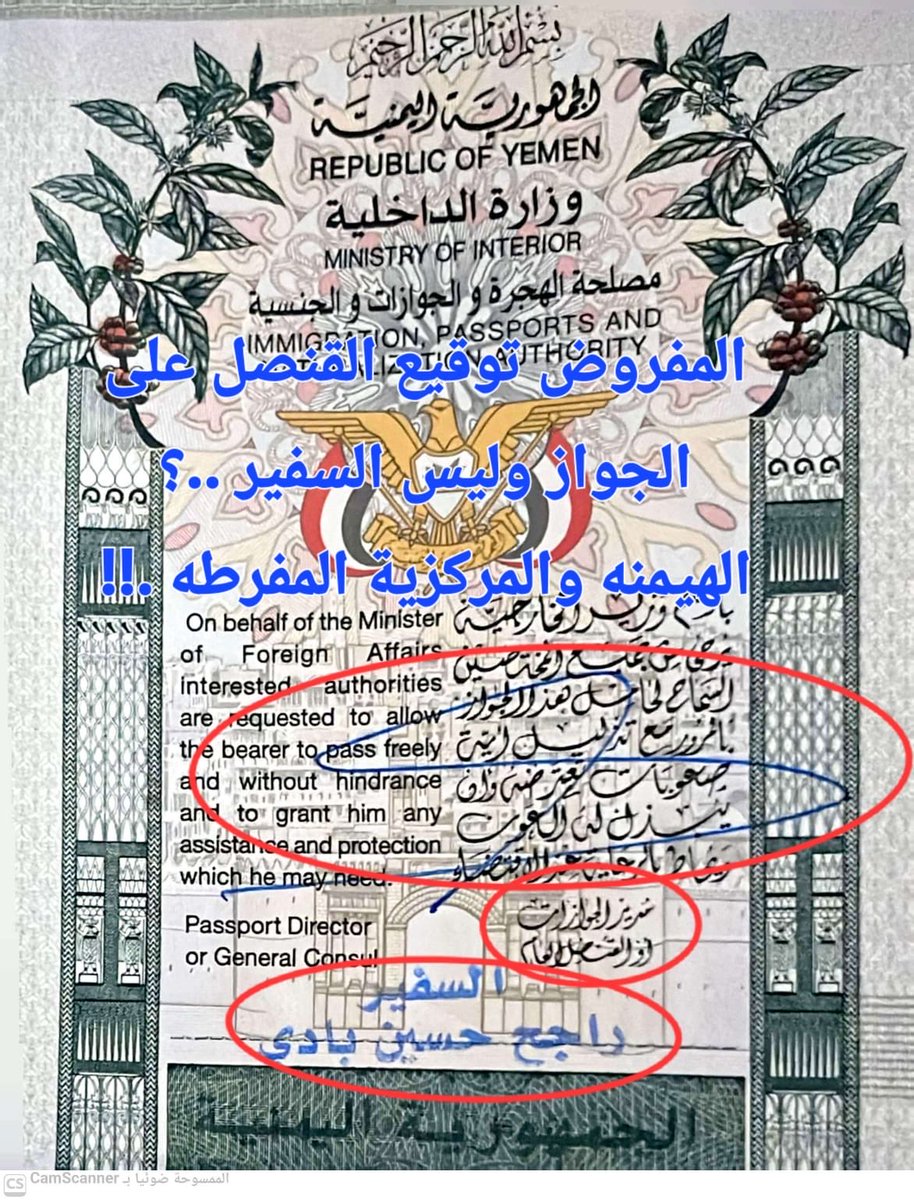 بسم الله الرحمن الرحيم
الجمهورية اليمنية
REPUBLIC OF YEMEN
وزارة الداخلية
MINISTRY OF INTERIOR
مصلحة الهجرة و الجوازات و الجنسية
IMMIGRATION, PASSPORTS AND
AUTHORITY
المفروض توقيع القنصل على
الجواز وليس السفير ..؟
الهيمنه والمركزية المفرطه .!!
On behalf of the Minister
of Foreign Affairs
interested authorities
are requested to allow
the bearer to pass freely
and without hindrance
and to grant him any
assistance and protection
which he may need.
وزير الخارجية
يرجى من جميع المختصين
السماح لحامل هذا الجواز
بالمرور مع تذليل أية
صعوبات تعترضه وأن
يبذل له العون
عند الاقتضاء
Passport Director
or General Consul
مدير الجوازات
أو القنصل العام
السفير
راجح حسين بادي
الجمهورية اليمنية
CS CamScanner الممسوحة ضوئيا بـ